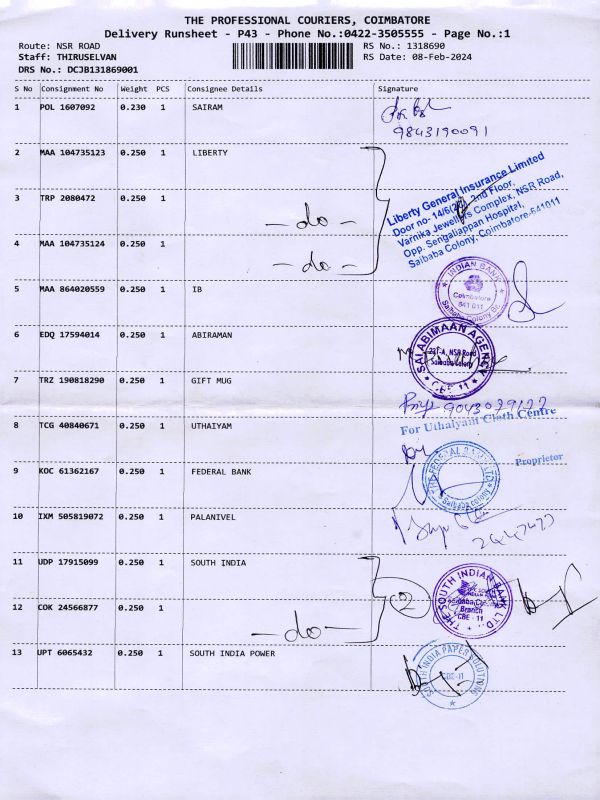 THE PROFESSIONAL COURIERS, COIMBATORE
Delivery Runsheet - P43 - Phone No.:0422-3505555 - Page No.:1
Route: NSR ROAD RS No.: 1318690
Staff: THIRUSELVAN RS Date: 08-Feb-2024
DRS No.: DCJB131869001
S No Consignment No Weight PCS Consignee Details Signature
1 POL 1607092 0.230 1 SAIRAM
9843190091
2 MAA 104735123 0.250 1 LIBERTY
Liberty General Insurance Limited
2nd Floor,
Varnika Jewellers Complex, NSR Road,
Opp. Sengaliappan Hospital,
Saibaba Colony, Coimbatore-641011
3 TRP 2080472 0.250 1 - do -
4 MAA 104735124 0.250 1 - do -
5 MAA 864020559 0.250 1 IB
INDIAN BANK
Coimbatore
641 011
Saibaba Colony Br.
6 EDQ 17594014 0.250 1 ABIRAMAN
SAI ABIMAAN AGENCY
NSR Road
Saibaba Colony
CBE - 11
7 TRZ 190818290 0.250 1 GIFT MUG
8 TCG 40840671 0.250 1 UTHAIYAM
For Uthaiyam Cloth Centre
Proprietor
9 KOC 61362167 0.250 1 FEDERAL BANK
THE FEDERAL BANK LTD.
Saibaba colony
10 IXM 505819072 0.250 1 PALANIVEL
11 UDP 17915099 0.250 1 SOUTH INDIA
2
THE SOUTH INDIAN BANK LTD.
Branch
CBE - 11
12 COK 24566877 0.250 1 - do -
13 UPT 6065432 0.250 1 SOUTH INDIA POWER
SOUTH INDIA PAPER SOLUTIONS
CBE-11